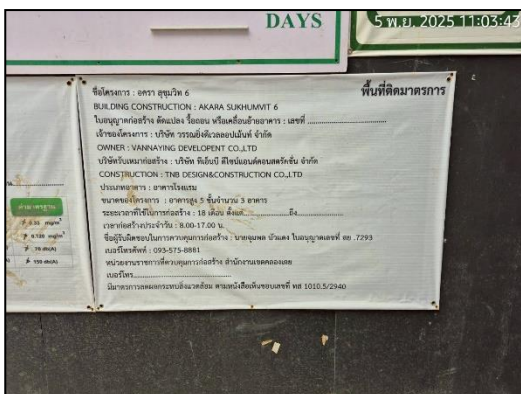 DAYS
5 พ.ย. 2025 11:03:43
พื้นที่ติดมาตรการ
ชื่อโครงการ : อครา สุขุมวิท 6
BUILDING CONSTRUCTION : AKARA SUKHUMVIT 6
ใบอนุญาตก่อสร้าง ดัดแปลง รื้อถอน หรือเคลื่อนย้ายอาคาร : เลขที่
เจ้าของโครงการ : บริษัท วรรณยิ่งดีเวลลอปเม้นท์ จำกัด
OWNER : VANNAYING DEVELOPENT CO.,LTD
บริษัทรับเหมาก่อสร้าง : บริษัท ทีเอ็นบี ดีไซน์แอนด์คอนสตรัคชั่น จำกัด
CONSTRUCTION : TNB DESIGN&CONSTRUCTION CO.,LTD
ประเภทอาคาร : อาคารโรงแรม
ขนาดของโครงการ : อาคารสูง 5 ชั้นจำนวน 3 อาคาร
ระยะเวลาที่ใช้ในการก่อสร้าง : 18 เดือน ตั้งแต่ ถึง
เวลาก่อสร้างประจำวัน : 8.00-17.00 น.
ชื่อผู้รับผิดชอบในการควบคุมการก่อสร้าง : นายจุมพล บัวแดง ใบอนุญาตเลขที่ สย .7293
เบอร์โทรศัพท์ : 093-575-8881
หน่วยงานราชการที่ควบคุมการก่อสร้าง สำนักงานเขตคลองเตย
เบอร์โทร
มีมาตรการลดผลกระทบสิ่งแวดล้อม ตามหนังสือเห็นชอบเลขที่ ทส 1010.5/2940
ค่ามาตรฐาน
mg/m³
0.120 mg/m³
70 db(A)